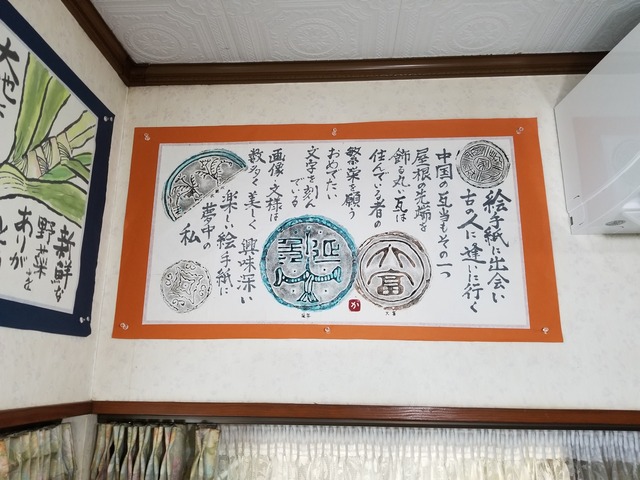 絵手紙に出会い
古の人に逢いに行く
中国の瓦当もその一つ
屋根の先端を
飾る丸い瓦は
住んでいる者の
繁栄を願う
おめでたい
文字を刻ん
でいる
画像・文様は
数多く美しく興味深い
楽しい絵手紙に
夢中の
私
大富
か
大地に
新鮮な
野菜
ありがとを